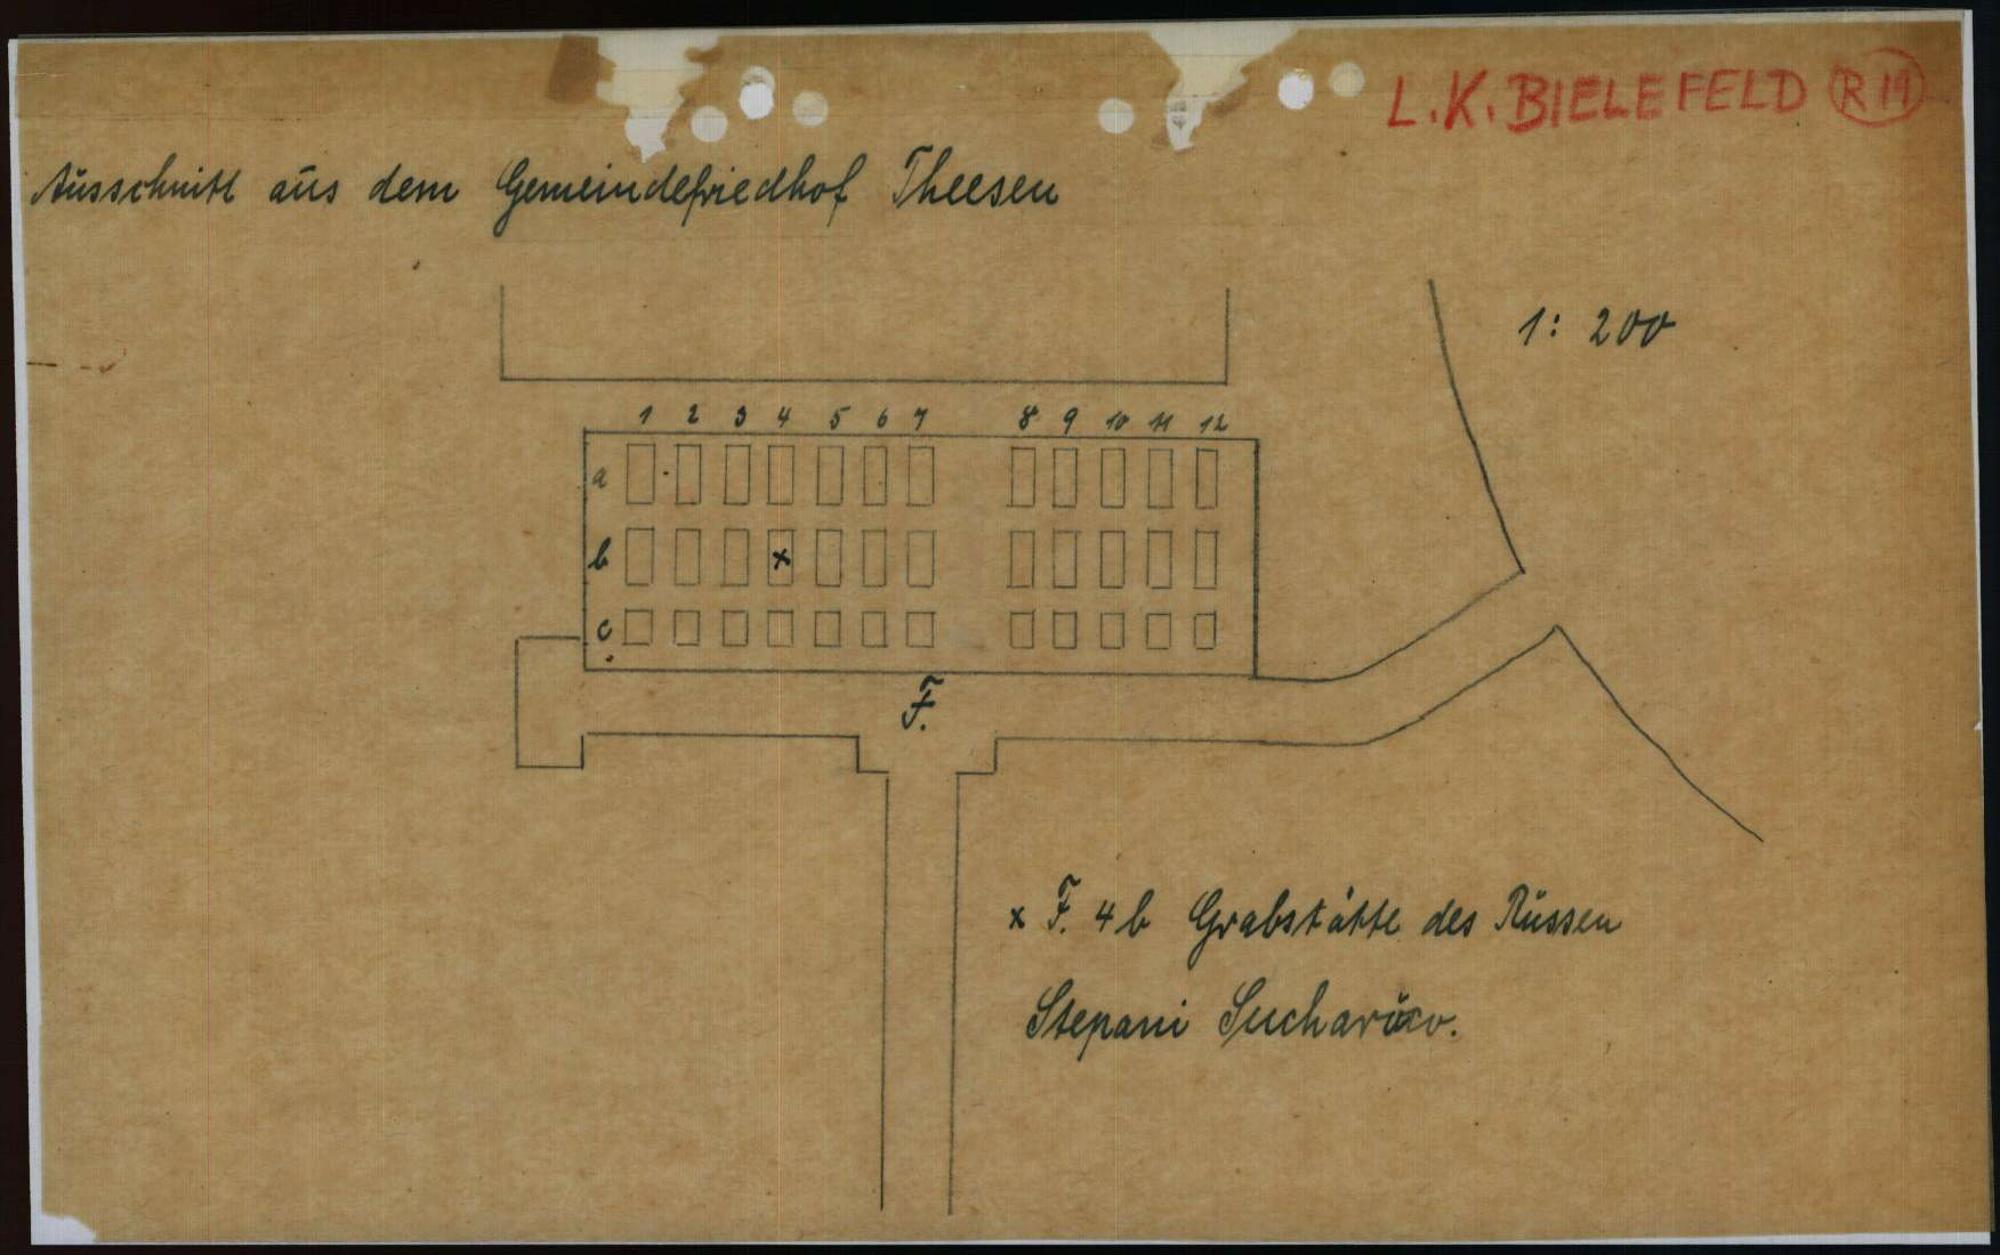 L.K. BIELEFELD R 19
Ausschnitt aus dem Gemeindefriedhof Theesen
1: 200
1 2 3 4 5 6 7 8 9 10 11 12
a
b x
c
F.
x F. 4 b Grabstätte des Russen
Stepani